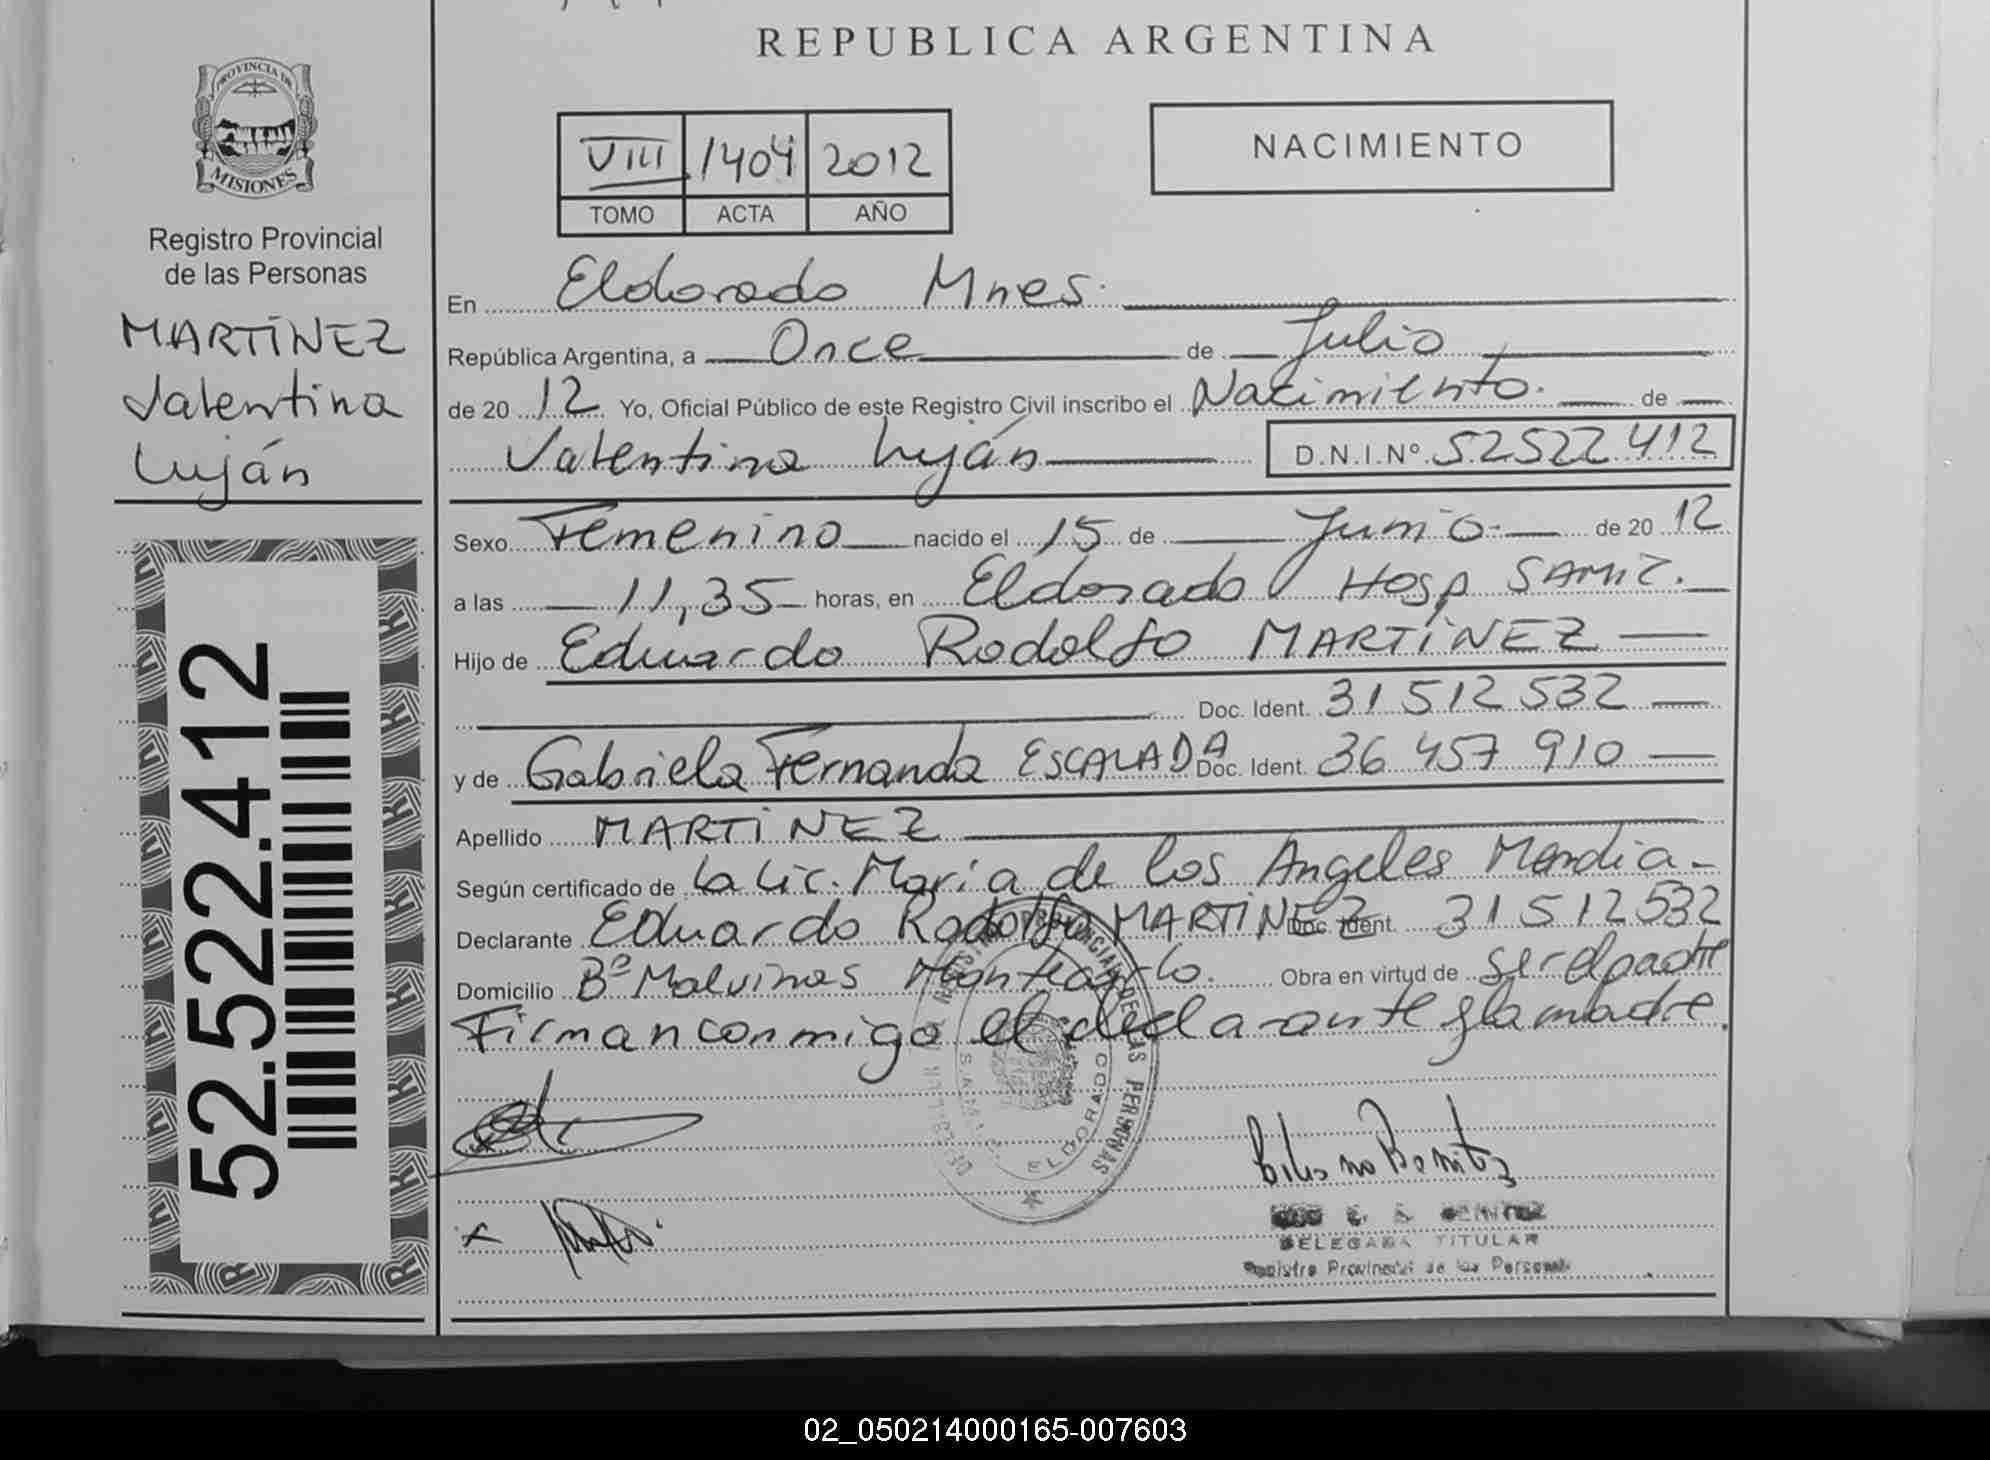 REPUBLICA ARGENTINA
PROVINCIA DE
MISIONES
Registro Provincial
de las Personas
MARTÍNEZ
Valentina
Luján
52.522.412
VIII 1404 2012
TOMO ACTA AÑO
NACIMIENTO
En Eldorado Mnes.
República Argentina, a Once de Julio
de 20 12 Yo, Oficial Público de este Registro Civil inscribo el Nacimiento. de
Valentina Luján D.N.I.Nº 52522412
Sexo Femenino nacido el 15 de Junio de 20 12
a las 11,35 horas, en Eldorado Hosp SAMIC.
Hijo de Eduardo Rodolfo MARTÍNEZ
Doc. Ident. 31 512 532
y de Gabriela Fernanda ESCALADA Doc. Ident. 36 457 910
Apellido MARTÍNEZ
Según certificado de la Lic. María de los Angeles Mendia
Declarante Eduardo Rodolfo MARTINEZ Doc. Ident. 31512532
Domicilio Bº Malvinas Montecarlo. Obra en virtud de ser el padre
Firman conmigo el declarante y la madre.
S.A.M.I.C.
ELDORADO
BENITEZ
DELEGADA TITULAR
Registro Provincial de las Personas
02_050214000165-007603